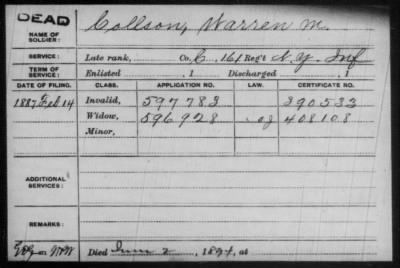 DEAD
NAME OF SOLDIER:
Collson, Warren M.
SERVICE:
Late rank, Co. C. 161 Reg't N.Y. Inf
TERM OF SERVICE:
Enlisted , 1 Discharged , 1
DATE OF FILING. CLASS. APPLICATION NO. LAW. CERTIFICATE NO.
1887 Feb 14 Invalid, 597783 390533
Widow, 596928 408108
Minor,
ADDITIONAL SERVICES:
REMARKS:
Died June 2, 1894, at